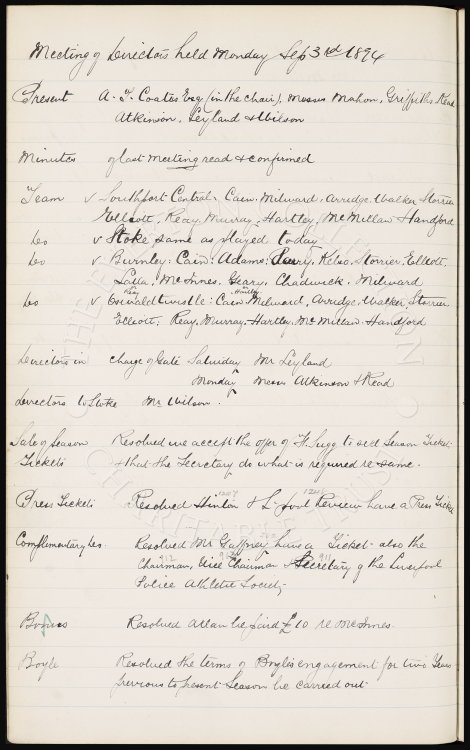 Meeting of Directors held Monday Sep 3rd 1894
Present A. T. Coates Esq (in the chair), Messrs Mahon, Griffiths Read
Atkinson, Leyland & Wilson
Minutes of last meeting read & confirmed
Team v Southport Central: Cain: Milward: Arridge: Walker Storrier
Elliott, Reay Murray, Hartley, McMillan Handford
Do v Stoke same as played today
Do v Burnley: Cain: Adams: Parry, Kelso, Storrier: Elliott,
Latta, McInnes. Geary, Chadwick. Milward
Do v Oswaldtwistle: Cain Milward, Arridge, Walker Storrier
Elliott: Reay, Murray, Hartley, McMillan Handford
Directors in charge of Gate Saturday Mr Leyland
Monday Messrs Atkinson & Read
Directors to Stoke Mr Wilson.
Sale of Season Resolved we accept the offer of H. Sugg to sell Season Tickets
Tickets & that the Secretary do what is required re same.
Press Tickets Resolved Hinton & L'pool Review have a Press Ticket
Complimentary Do. Resolved Mr Gaffney have a Ticket also the
912 911
Chairman, Vice Chairman & Secretary of the Liverpool
Police Athletic Society
Bonus Resolved Allan be paid £10 re McInnes.
Boyle Resolved the terms of Boyle's engagement for two Years
previous to present Season be carried out